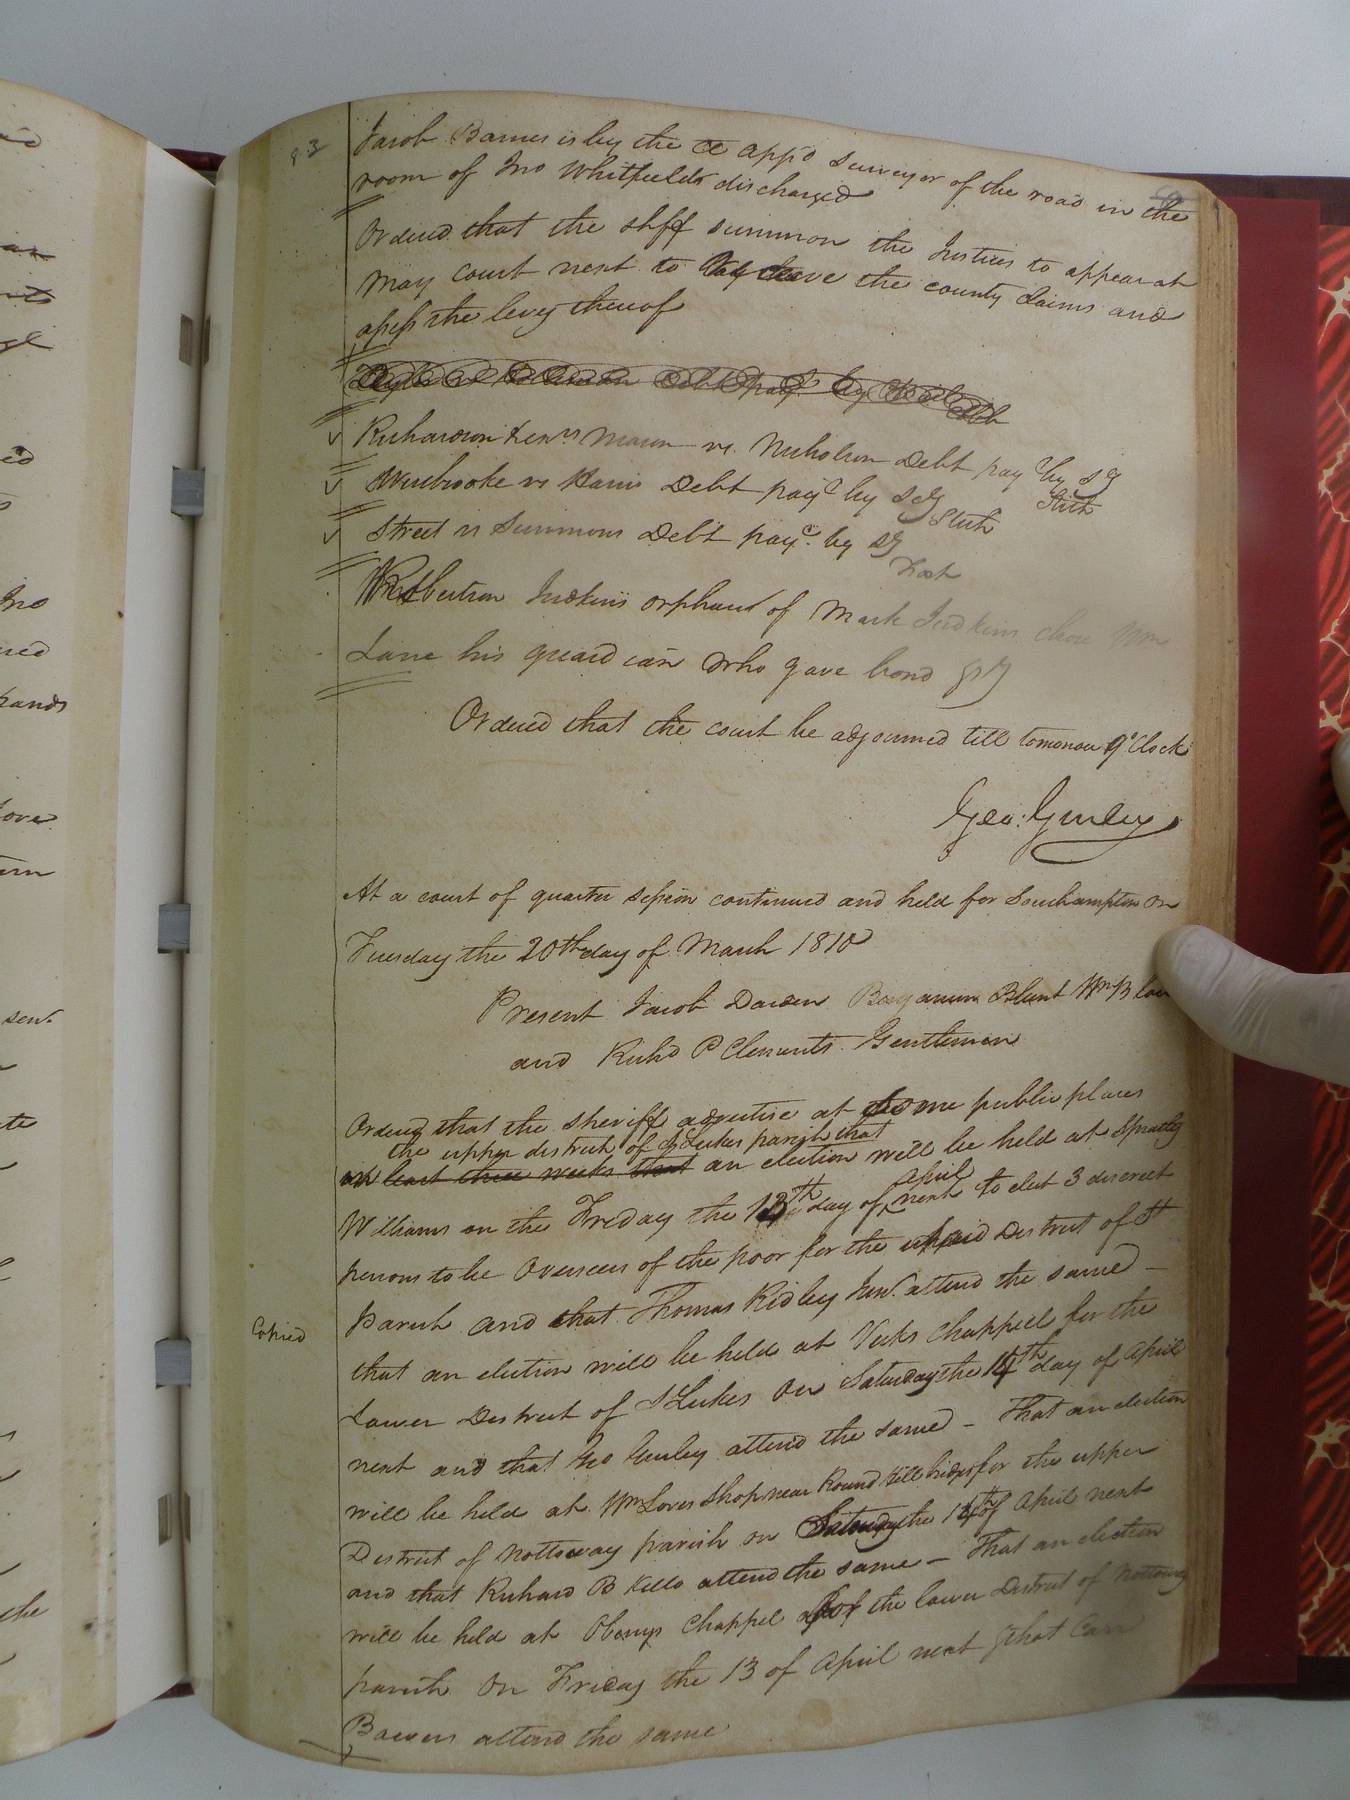 93
Jacob Barnes is by the Ct app'd Surveyor of the road in the
room of Jno Whitfield discharged
Ordered that the shff summon the Justices to appear at
May court next to the county claims and
assess the levy thereof
Richardson & Mason vs. Nicholson Debt pay by
Stith
Westbrooke vs Harris Debt pay'd by
Stith
Street vs Simmons Debt pay'd by
Robertson Judkins orphan of Mark Judkins chose Wm
Lane his guardian who gave bond
Ordered that the court be adjourned till tomorrow 9 oClock
Geo: Gurley
At a court of quarter session continued and held for Southampton on
Tuesday the 20th day of March 1810
Present Jacob Darden Benjamin Blunt Wm B
and Richd P Clements Gentlemen
Ordered that the sheriff advertise at some public places
the upper district of St Lukes parish that
at least three weeks that an election will be held at Spratley
April
Williams on the Friday the 13th day of next to elect 3 discreet
persons to be Overseers of the poor for the District of St
Parish and that Thomas Ridley Junr. attend the same –
that an election will be held at Vicks Chappell for the
Lower District of S Lukes On Saturday the 14th day of April
next and that Geo Gurley attend the same – That an election
will be held at Wm Loves Shop near Round Hill bridge for the upper
District of Nottoway parish on Saturday the 14th of April next
and that Richard B Kello attend the same – That an election
Copied
will be held at Oberrys Chappel for the lower District of Nottoway
parish On Friday the 13 of April next & that Carr
Bowers attend the same